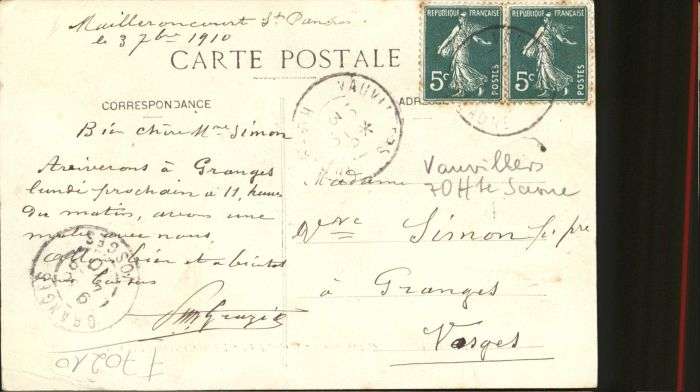 Mailleroncourt St Pancras
le 3 7bre 1910
CARTE POSTALE
RÉPUBLIQUE FRANÇAISE
5c
POSTES
RÉPUBLIQUE FRANÇAISE
5c
POSTES
VAUVILLERS
CORRESPONDANCE
Bien chère Mme Simon
Arriverons à Granges
lundi prochain à 11 heures
du matin, avons une
malle avec nous.
et à bientôt
Vauvillers
70 Hte Saone
Madame
Vve Simon
à Granges
Vosges
GRANGES
VOSGES
770210